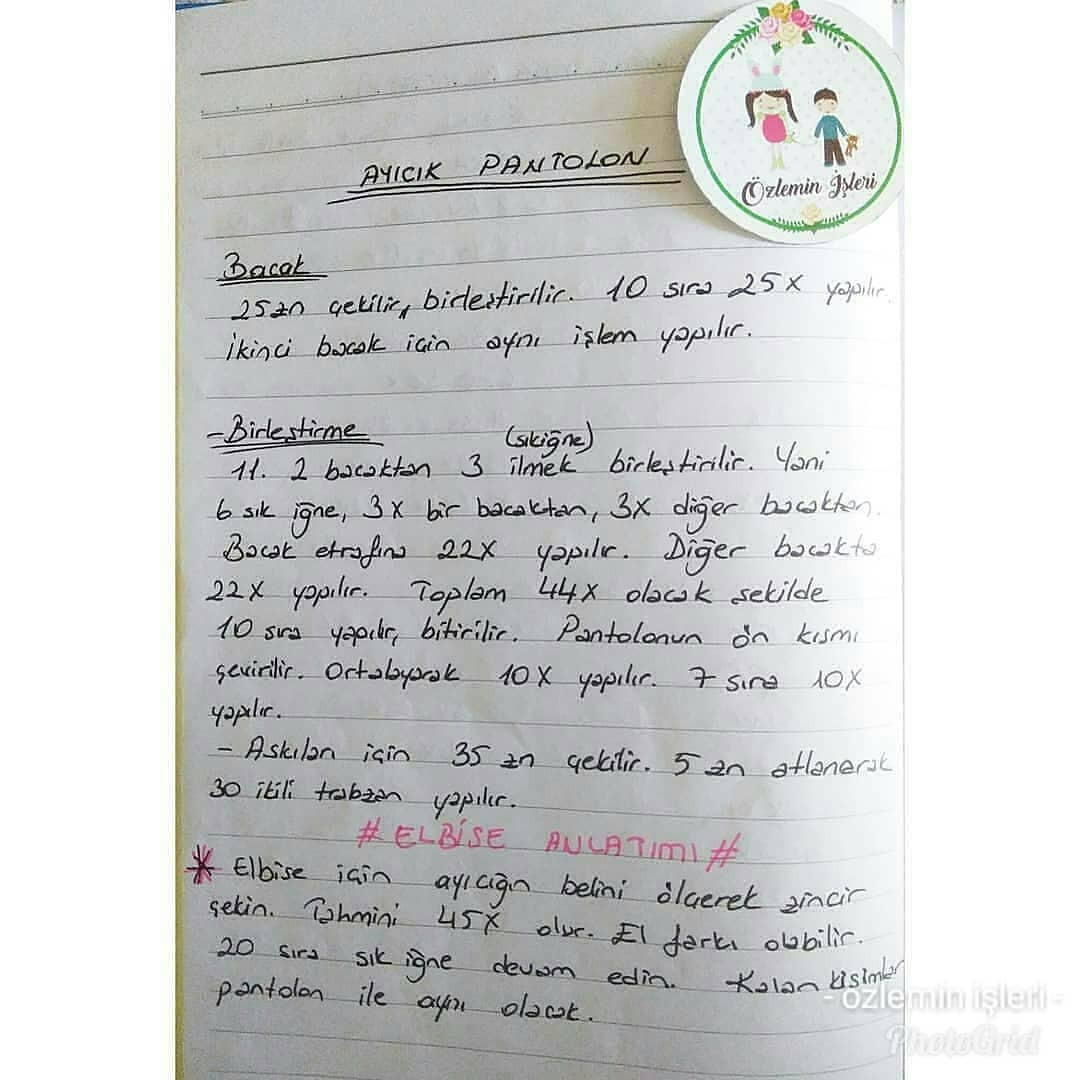 Özlemin İşleri
AYICIK PANTOLON
Bacak
25 zn çekilir, birleştirilir. 10 sıra 25X yapılır.
İkinci bacak için aynı işlem yapılır.
- Birleştirme
(sıkiğne)
11. 2 bacaktan 3 ilmek birleştirilir. Yani
6 sık iğne, 3X bir bacaktan, 3X diğer bacaktan.
Bacak etrafına 22X yapılır. Diğer bacakta
22X yapılır. Toplam 44X olacak şekilde
10 sıra yapılır, bitirilir. Pantolonun ön kısmı
çevirilir. Ortalayarak 10X yapılır. 7 sıra 10X
yapılır.
- Askıları için 35 zn çekilir. 5 zn atlanarak
30 ikili trabzan yapılır.
# ELBİSE ANLATIMI #
* Elbise için ayıcığın belini ölçerek zincir
çekin. Tahmini 45X olur. El farkı olabilir.
20 sıra sık iğne devam edin. Kalan kısımlar
pantolon ile aynı olacak.
- özlemin işleri -
PhotoGrid